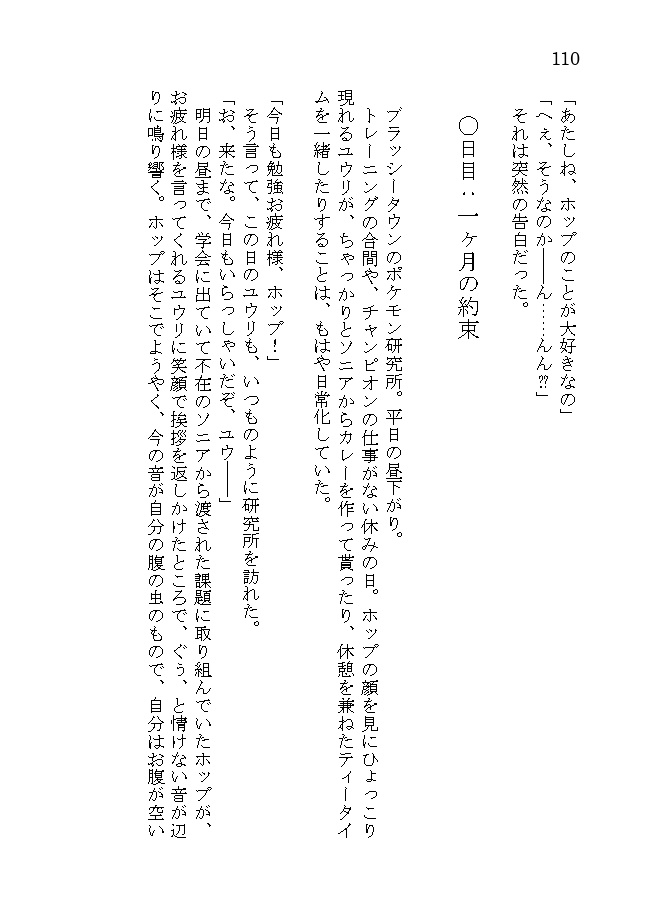 110
「あたしね、ホップのことが大好きなの」
「へぇ、そうなのか――ん……んん⁇」
それは突然の告白だった。
〇日目：一ヶ月の約束
ブラッシータウンのポケモン研究所。平日の昼下がり。
トレーニングの合間や、チャンピオンの仕事がない休みの日。ホップの顔を見にひょっこり
現れるユウリが、ちゃっかりとソニアからカレーを作って貰ったり、休憩を兼ねたティータイ
ムを一緒したりすることは、もはや日常化していた。
「今日も勉強お疲れ様、ホップ！」
そう言って、この日のユウリも、いつものように研究所を訪れた。
「お、来たな。今日もいらっしゃいだぞ、ユウ――」
明日の昼まで、学会に出ていて不在のソニアから渡された課題に取り組んでいたホップが、
お疲れ様を言ってくれるユウリに笑顔で挨拶を返しかけたところで、ぐぅ、と情けない音が辺
りに鳴り響く。ホップはそこでようやく、今の音が自分の腹の虫のもので、自分はお腹が空い